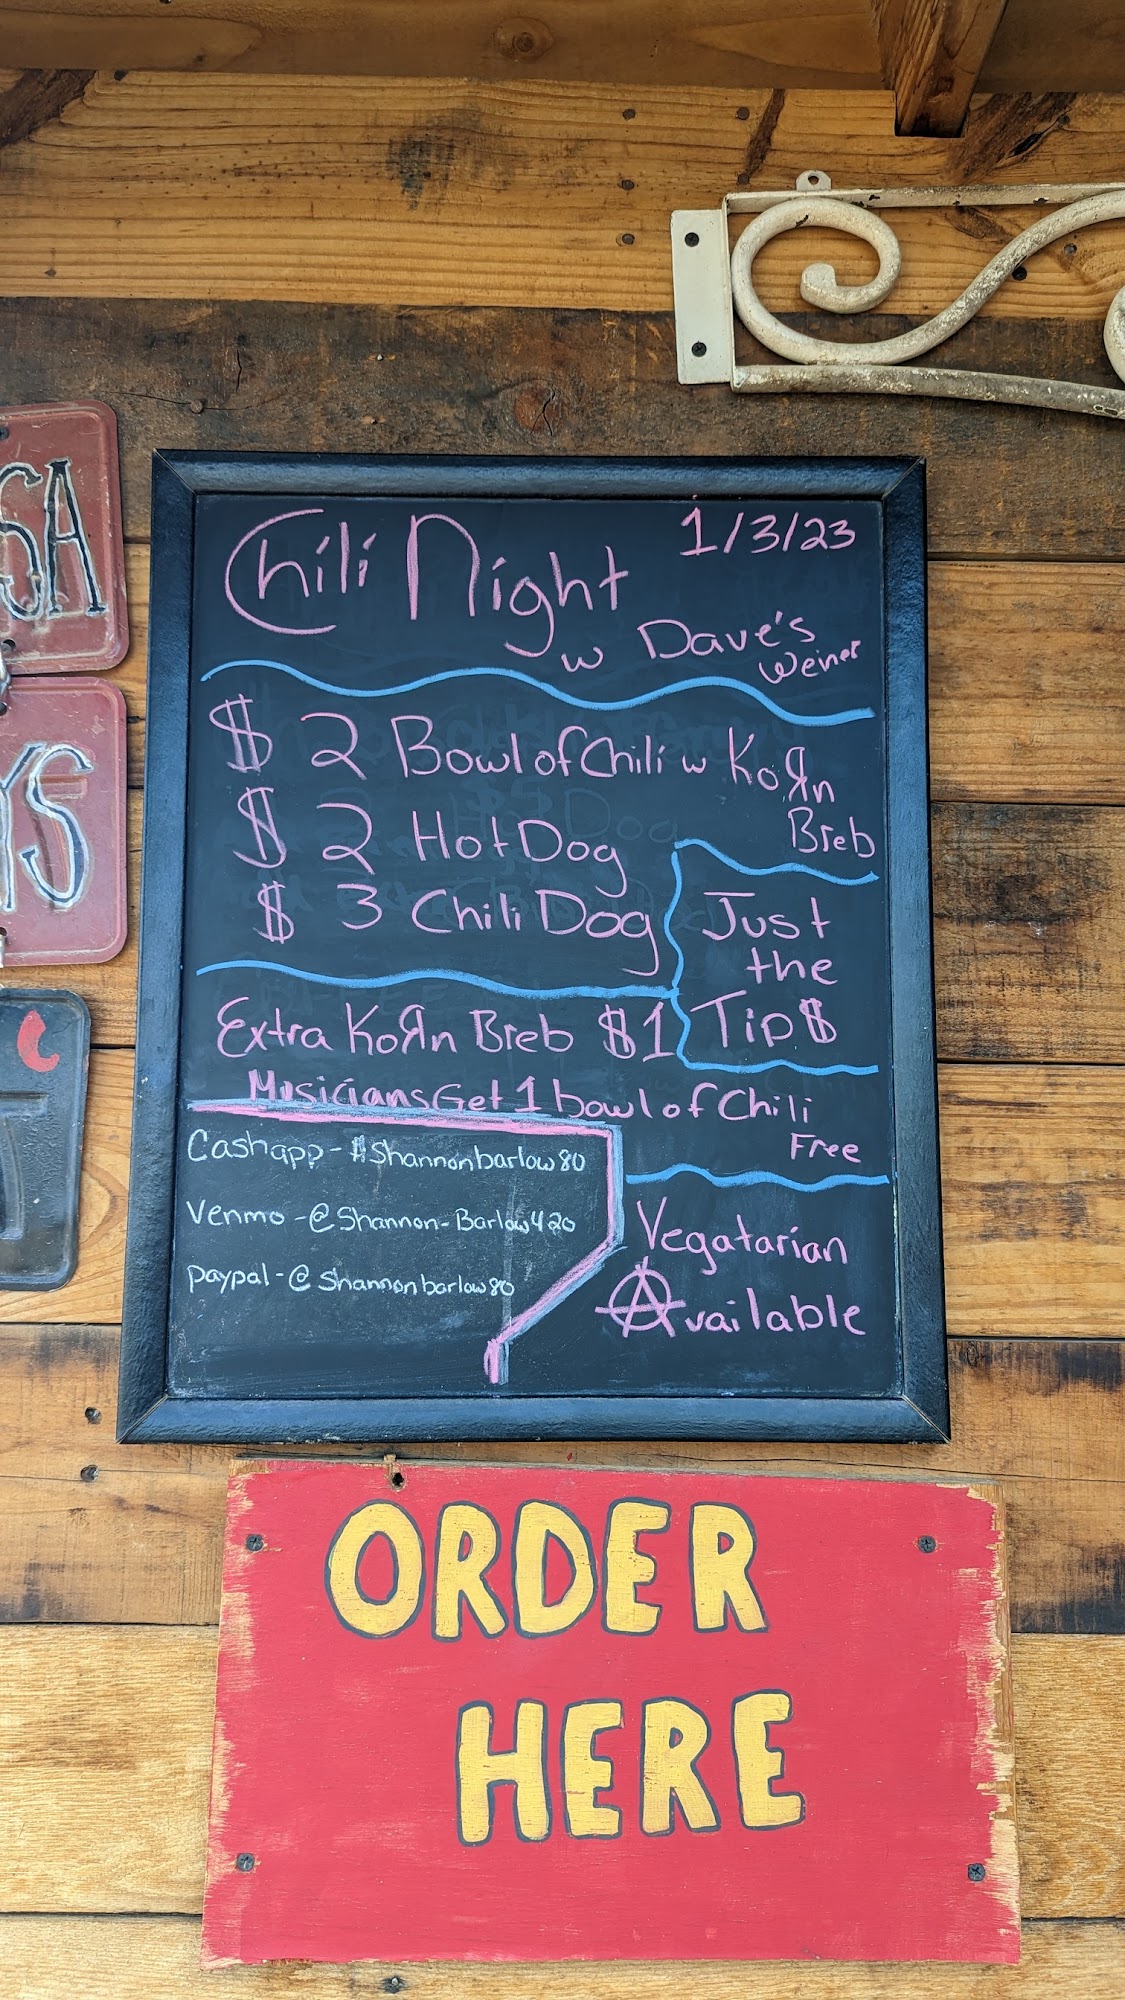 Chili Night 1/3/23
w Dave's
Weiner
$ 2 Bowl of Chili w KoЯn
Breb
$ 2 Hot Dog
$ 3 Chili Dog
Just
the
Tip$
Extra KoЯn Breb $1
Musicians Get 1 bowl of Chili
Free
Cashapp - $Shannonbarlow80
Venmo - @Shannon-Barlow420
paypal - @Shannonbarlow80
Vegatarian
Available
ORDER
HERE
SA
YS